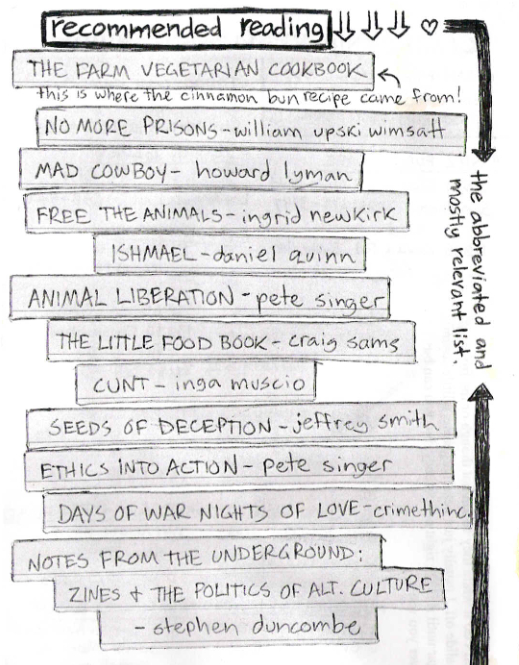 recommended reading
THE FARM VEGETARIAN COOKBOOK
this is where the cinnamon bun recipe came from!
NO MORE PRISONS - william upski wimsatt
MAD COWBOY - howard lyman
FREE THE ANIMALS - ingrid newkirk
ISHMAEL - daniel quinn
ANIMAL LIBERATION - pete singer
THE LITTLE FOOD BOOK - craig sams
CUNT - inga muscio
SEEDS OF DECEPTION - jeffrey smith
ETHICS INTO ACTION - pete singer
DAYS OF WAR NIGHTS OF LOVE - crimethinc.
NOTES FROM THE UNDERGROUND:
ZINES + THE POLITICS OF ALT. CULTURE
- stephen duncombe
the abbreviated and
mostly relevant list.